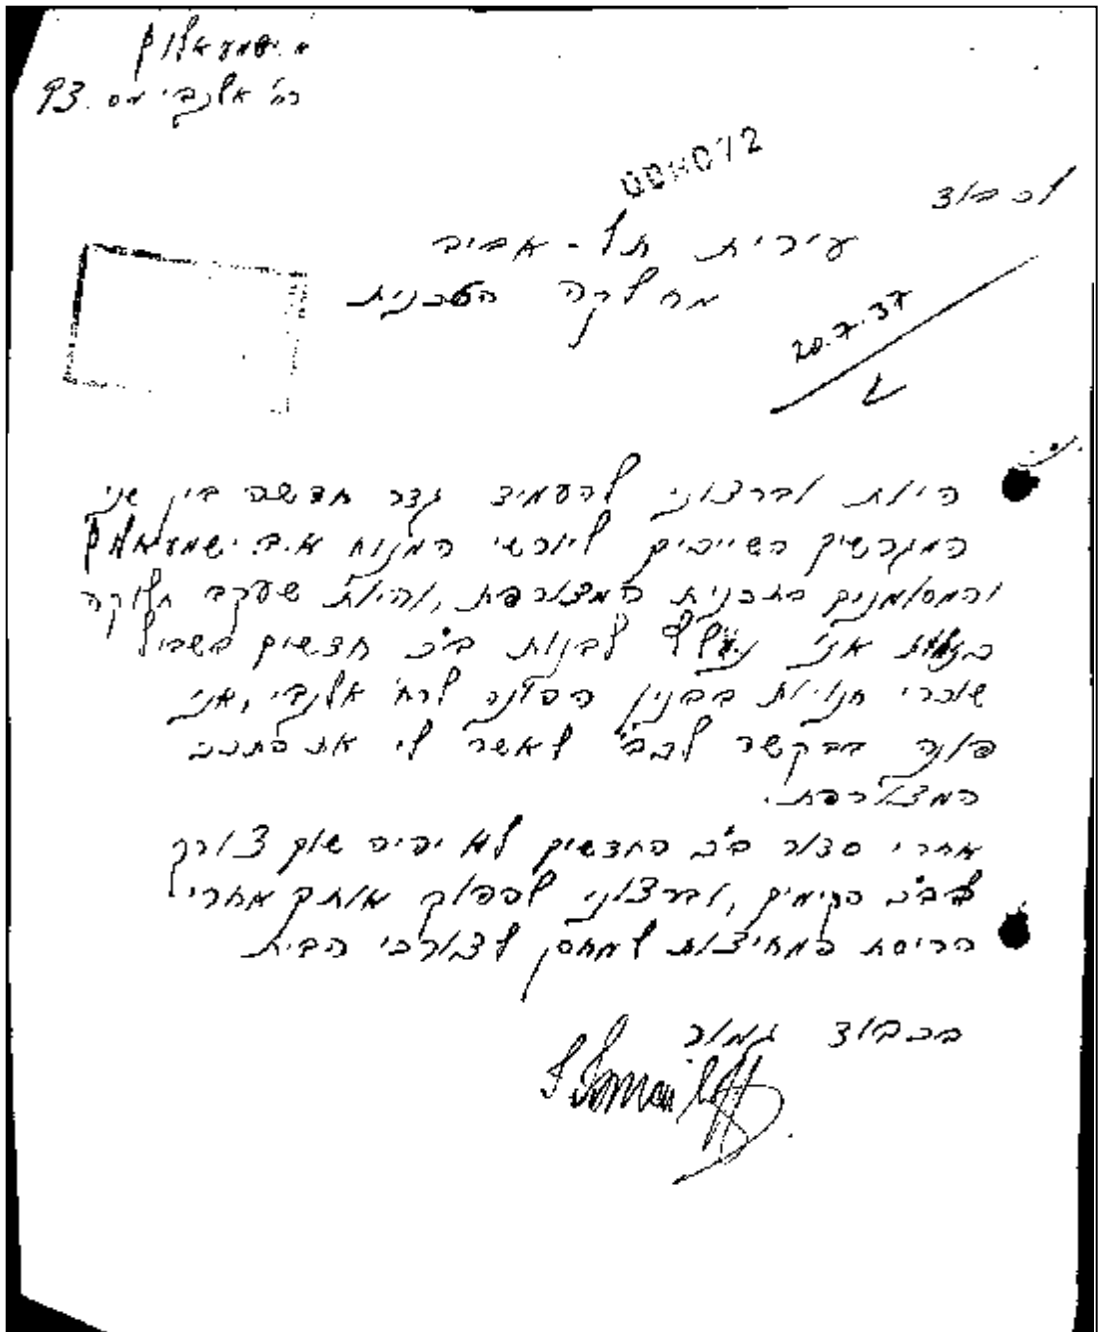 י. ישמעאלוף
רח' אלנבי מס. 93
לכבוד
עירית תל-אביב
מחלקה הטכנית
20.7.37
א.נ.
היות וברצוני להעמיד גדר חדשה בין שני
המגרשים השייכים ליורשי המנוח א.ב. ישמעאלוף
והמסומנים בתכנית המצורפת, והיות שעקב חלוקה
אני לבנות ב"כ חדשים בשביל
שוכרי חנויות בבנין הפונה לרח' אלנבי, אני
פונה בבקשה לכב' לאשר לי את התכנ'
המצורפת.
אחרי סדור ב"כ החדשים לא יהיה שום צורך
בב"כ הקימים, וברצוני להפוך אותם אחרי
הריסת המחיצות למחסן לצורכי הבית
בכבוד גמור